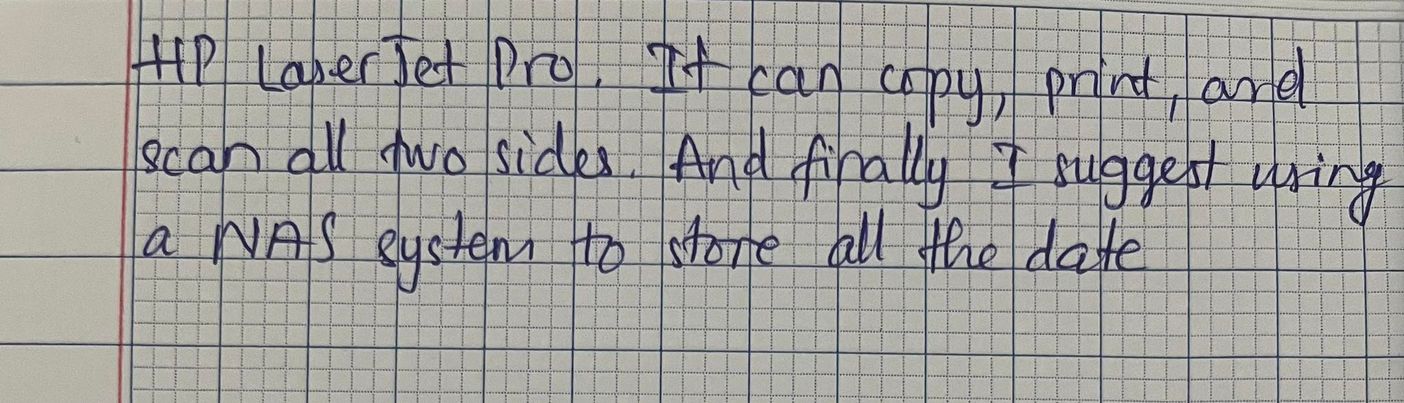 HP LaserJet Pro. It can copy, print, and
scan all two sides. And finally I suggest using
a NAS system to store all the date